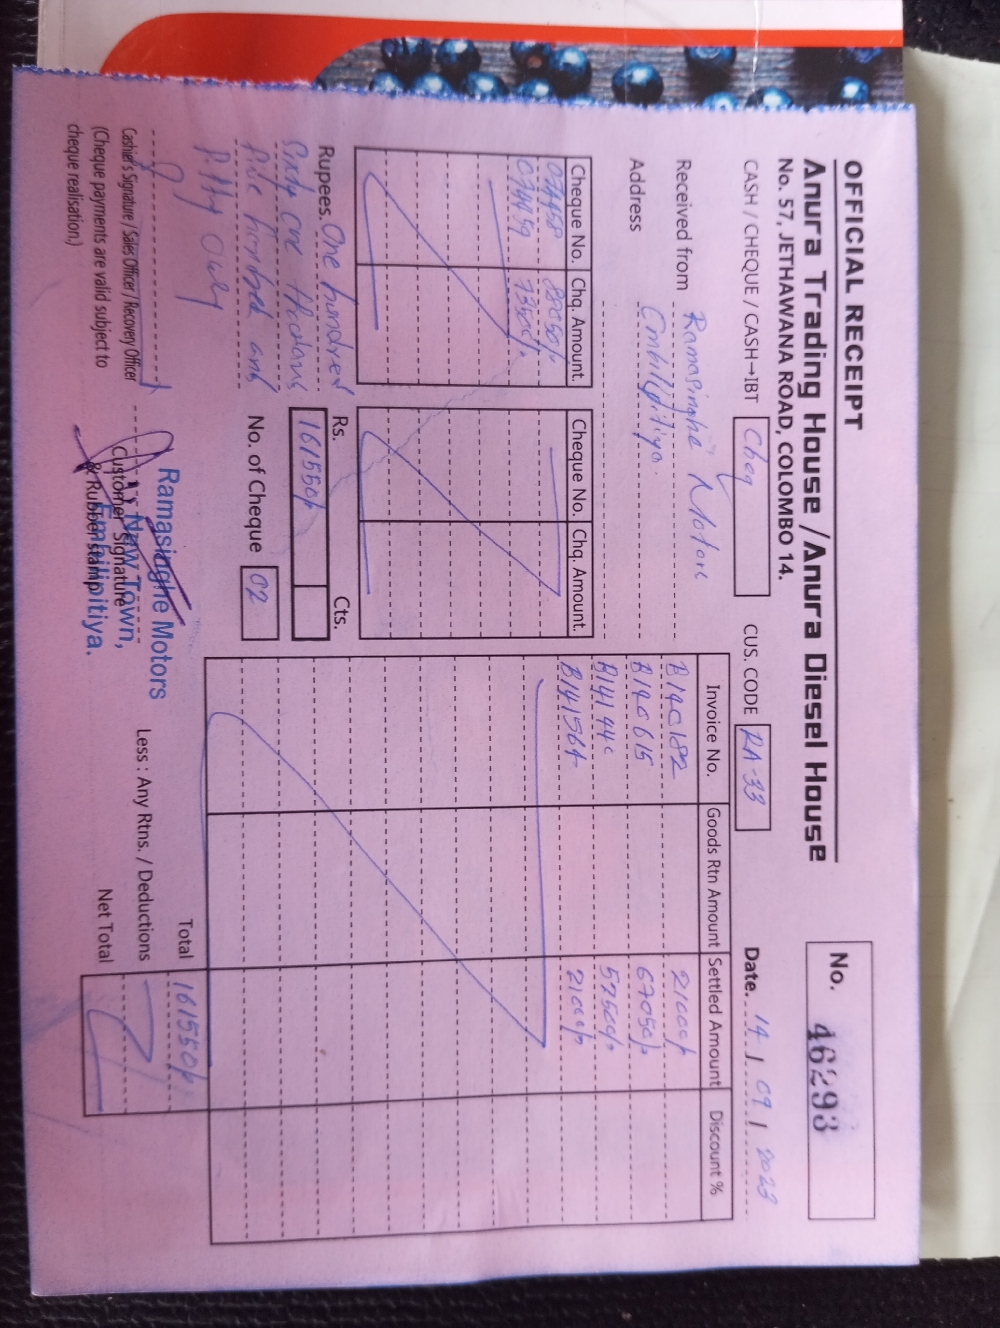 OFFICIAL RECEIPT
Anura Trading House /Anura Diesel House
No. 57, JETHAWANA ROAD, COLOMBO 14.
No. 46293
CASH / CHEQUE / CASH→IBT Cheq
CUS. CODE RA-33
Date. 14 / 09 / 2023
Received from Ramasinghe Motors
Address Embilipitiya.
Cheque No. Chq. Amount.
88050/-
73500/-
Cheque No. Chq. Amount.
Invoice No. Goods Rtn Amount Settled Amount Discount %
B140182 21000/-
B140615 67050/-
B141440 52500/-
B141564 21000/-
Rupees. One hundred
Sixty one thousand
five hundred and
fifty Only
Rs. Cts.
161550/-
No. of Cheque 02
Total 161550/-
Less : Any Rtns. / Deductions
Net Total
Cashier's Signature / Sales Officer / Recovery Officer
(Cheque payments are valid subject to
cheque realisation.)
Customer Signature
& Rubber stamp
Ramasinghe Motors
New Town,
Embilipitiya.